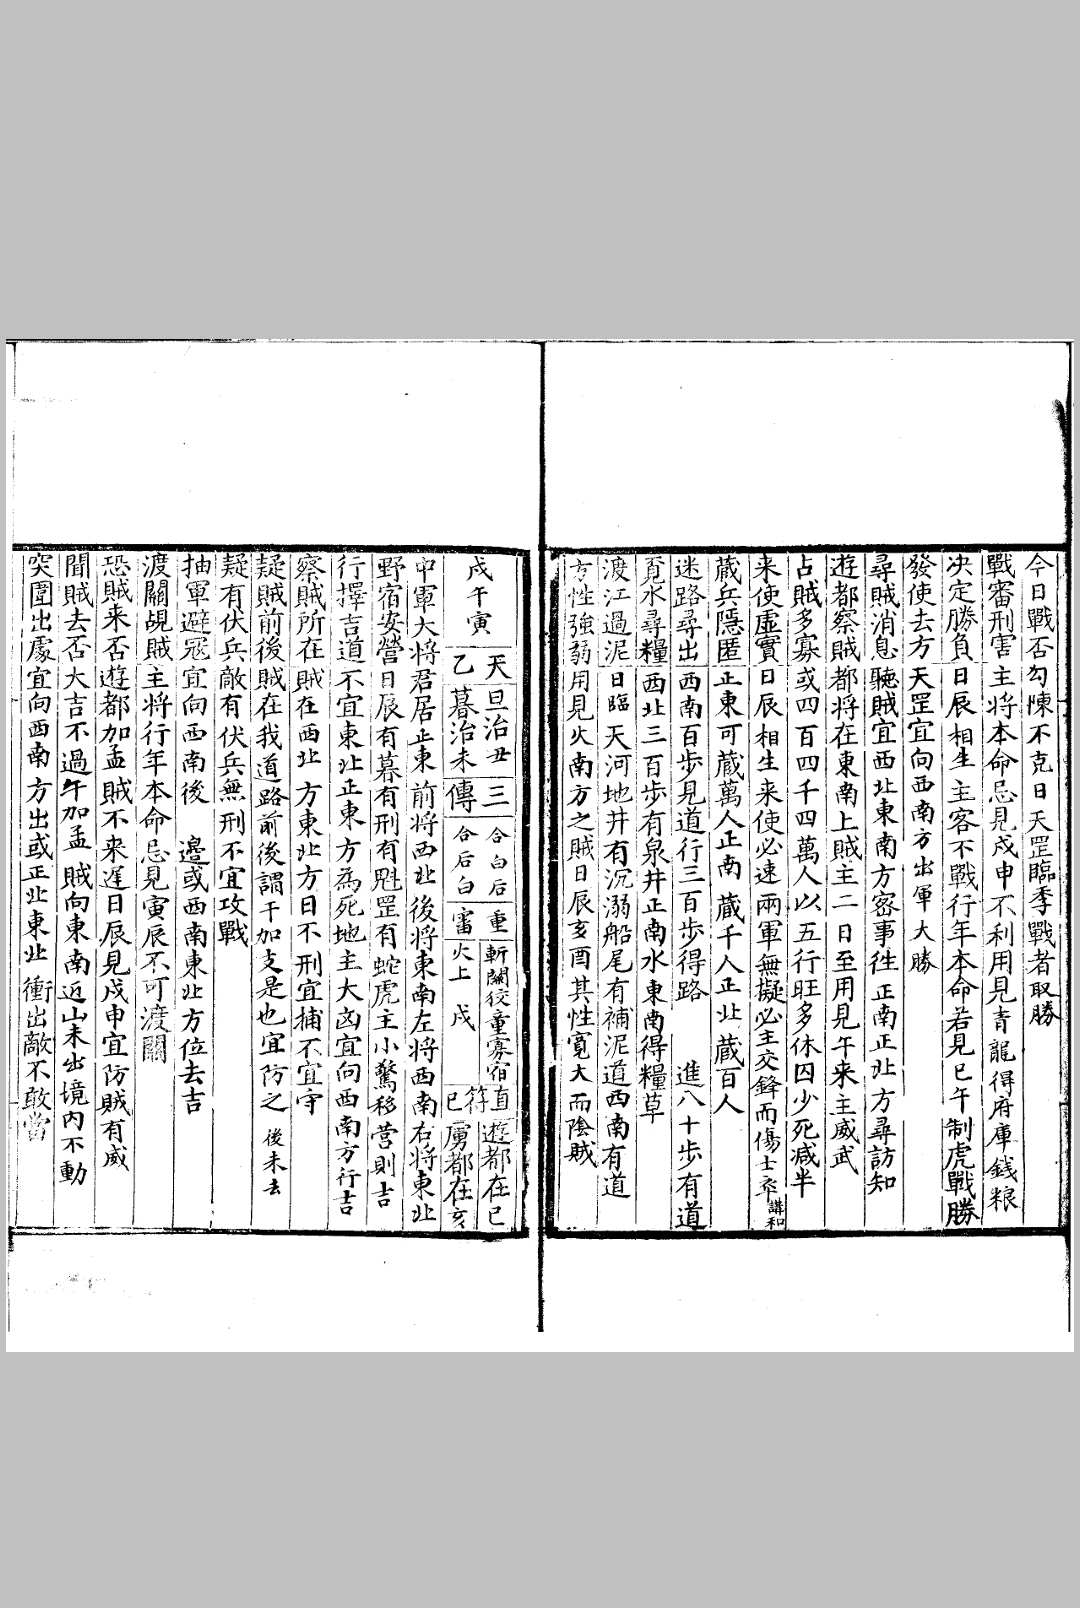 今日戰否勾悚不克日天罡臨季戰者取勝
戰審刑害主将本命忌見戌申不利用見青龍得府庫錢粮
决定勝負日辰相生主客不戰行年本命若見巳午制虎戰勝
發使去方天罡宜向西南方出軍大勝
尋賊消息聽賊宜西北東南方宻事徃正南正北方尋訪知
遊都察賊都将在東南上賊主二日至用見午来主威武
占賊多寡或四百四千四萬人以五行旺多休囚少死减半
来使虛實日辰相生来使必速兩軍無擬必主交鋒而傷士卒講和
蔵兵隱匿正東可蔵萬人正南蔵千人正北蔵百人
迷路尋出西南百步見道行三百步得路進八十步有道
覓水尋糧西北三百步有泉井正南水東南得糧草
渡江過泥日臨天河地井有沉溺船尾有補泥道西南有道
方性強弱用見火南方之賊日辰亥酉其性寬大而陰賊
戌午寅
天乙
旦治丑
暮治未
三傳
合白后
合后白
重審
斬關狡童寡宿
火上戌
直符巳
遊都在巳
虜都在亥
中軍大将君居正東前将西北後将東南左将西南右将東北
野宿安營日辰有暮有刑有魁罡有蛇虎主小驚移营則吉
行擇吉道不宜東北正東方為死地主大凶宜向西南方行吉
察賊所在賊在西北方東北方日不刑宜捕不宜守
疑賊前後賊在我道路前後謂干加支是也宜防之後未去
疑有伏兵敵有伏兵無刑不宜攻戰
抽軍避冦宜向西南後邉或西南東北方位去吉
渡關覘賊主将行年本命忌見寅辰不可渡關
恐賊来否遊都加孟賊不来遲日辰見戌申宜防賊有威
聞賊去否大吉不過午加孟賊向東南近山未出境内不動
突圍出處宜向西南方出或正北東北衝出敵不敢當